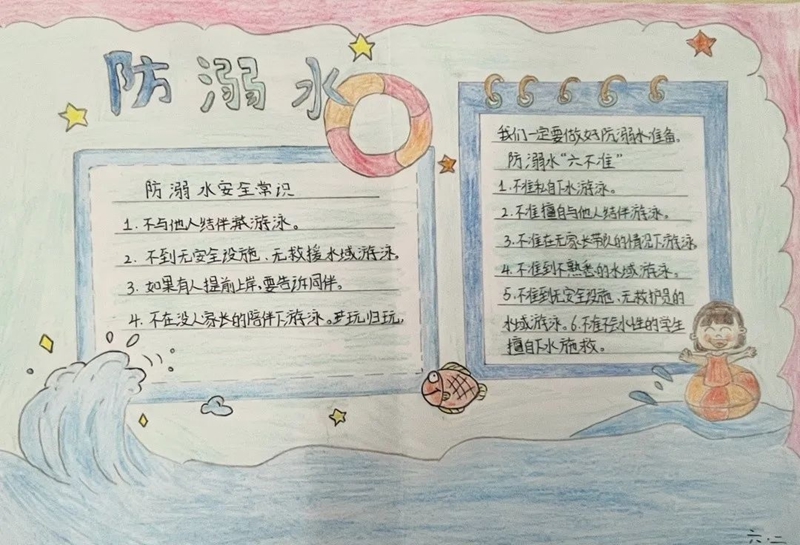 防溺水
防溺水安全常识
1.不与他人结伴游泳。
2.不到无安全设施、无救援水域游泳。
3.如果有人提前上岸,要告诉同伴。
4.不在没人家长的陪伴下游泳。玩归玩,
我们一定要做好防溺水准备。
防溺水“六不准”
1.不准私自下水游泳。
2.不准擅自与他人结伴游泳。
3.不准在无家长带队的情况下游泳
4.不准到不熟悉的水域游泳。
5.不准到无安全设施、无救护员的
水域游泳。6.不准不会水性的学生
擅自下水施救。
六.二